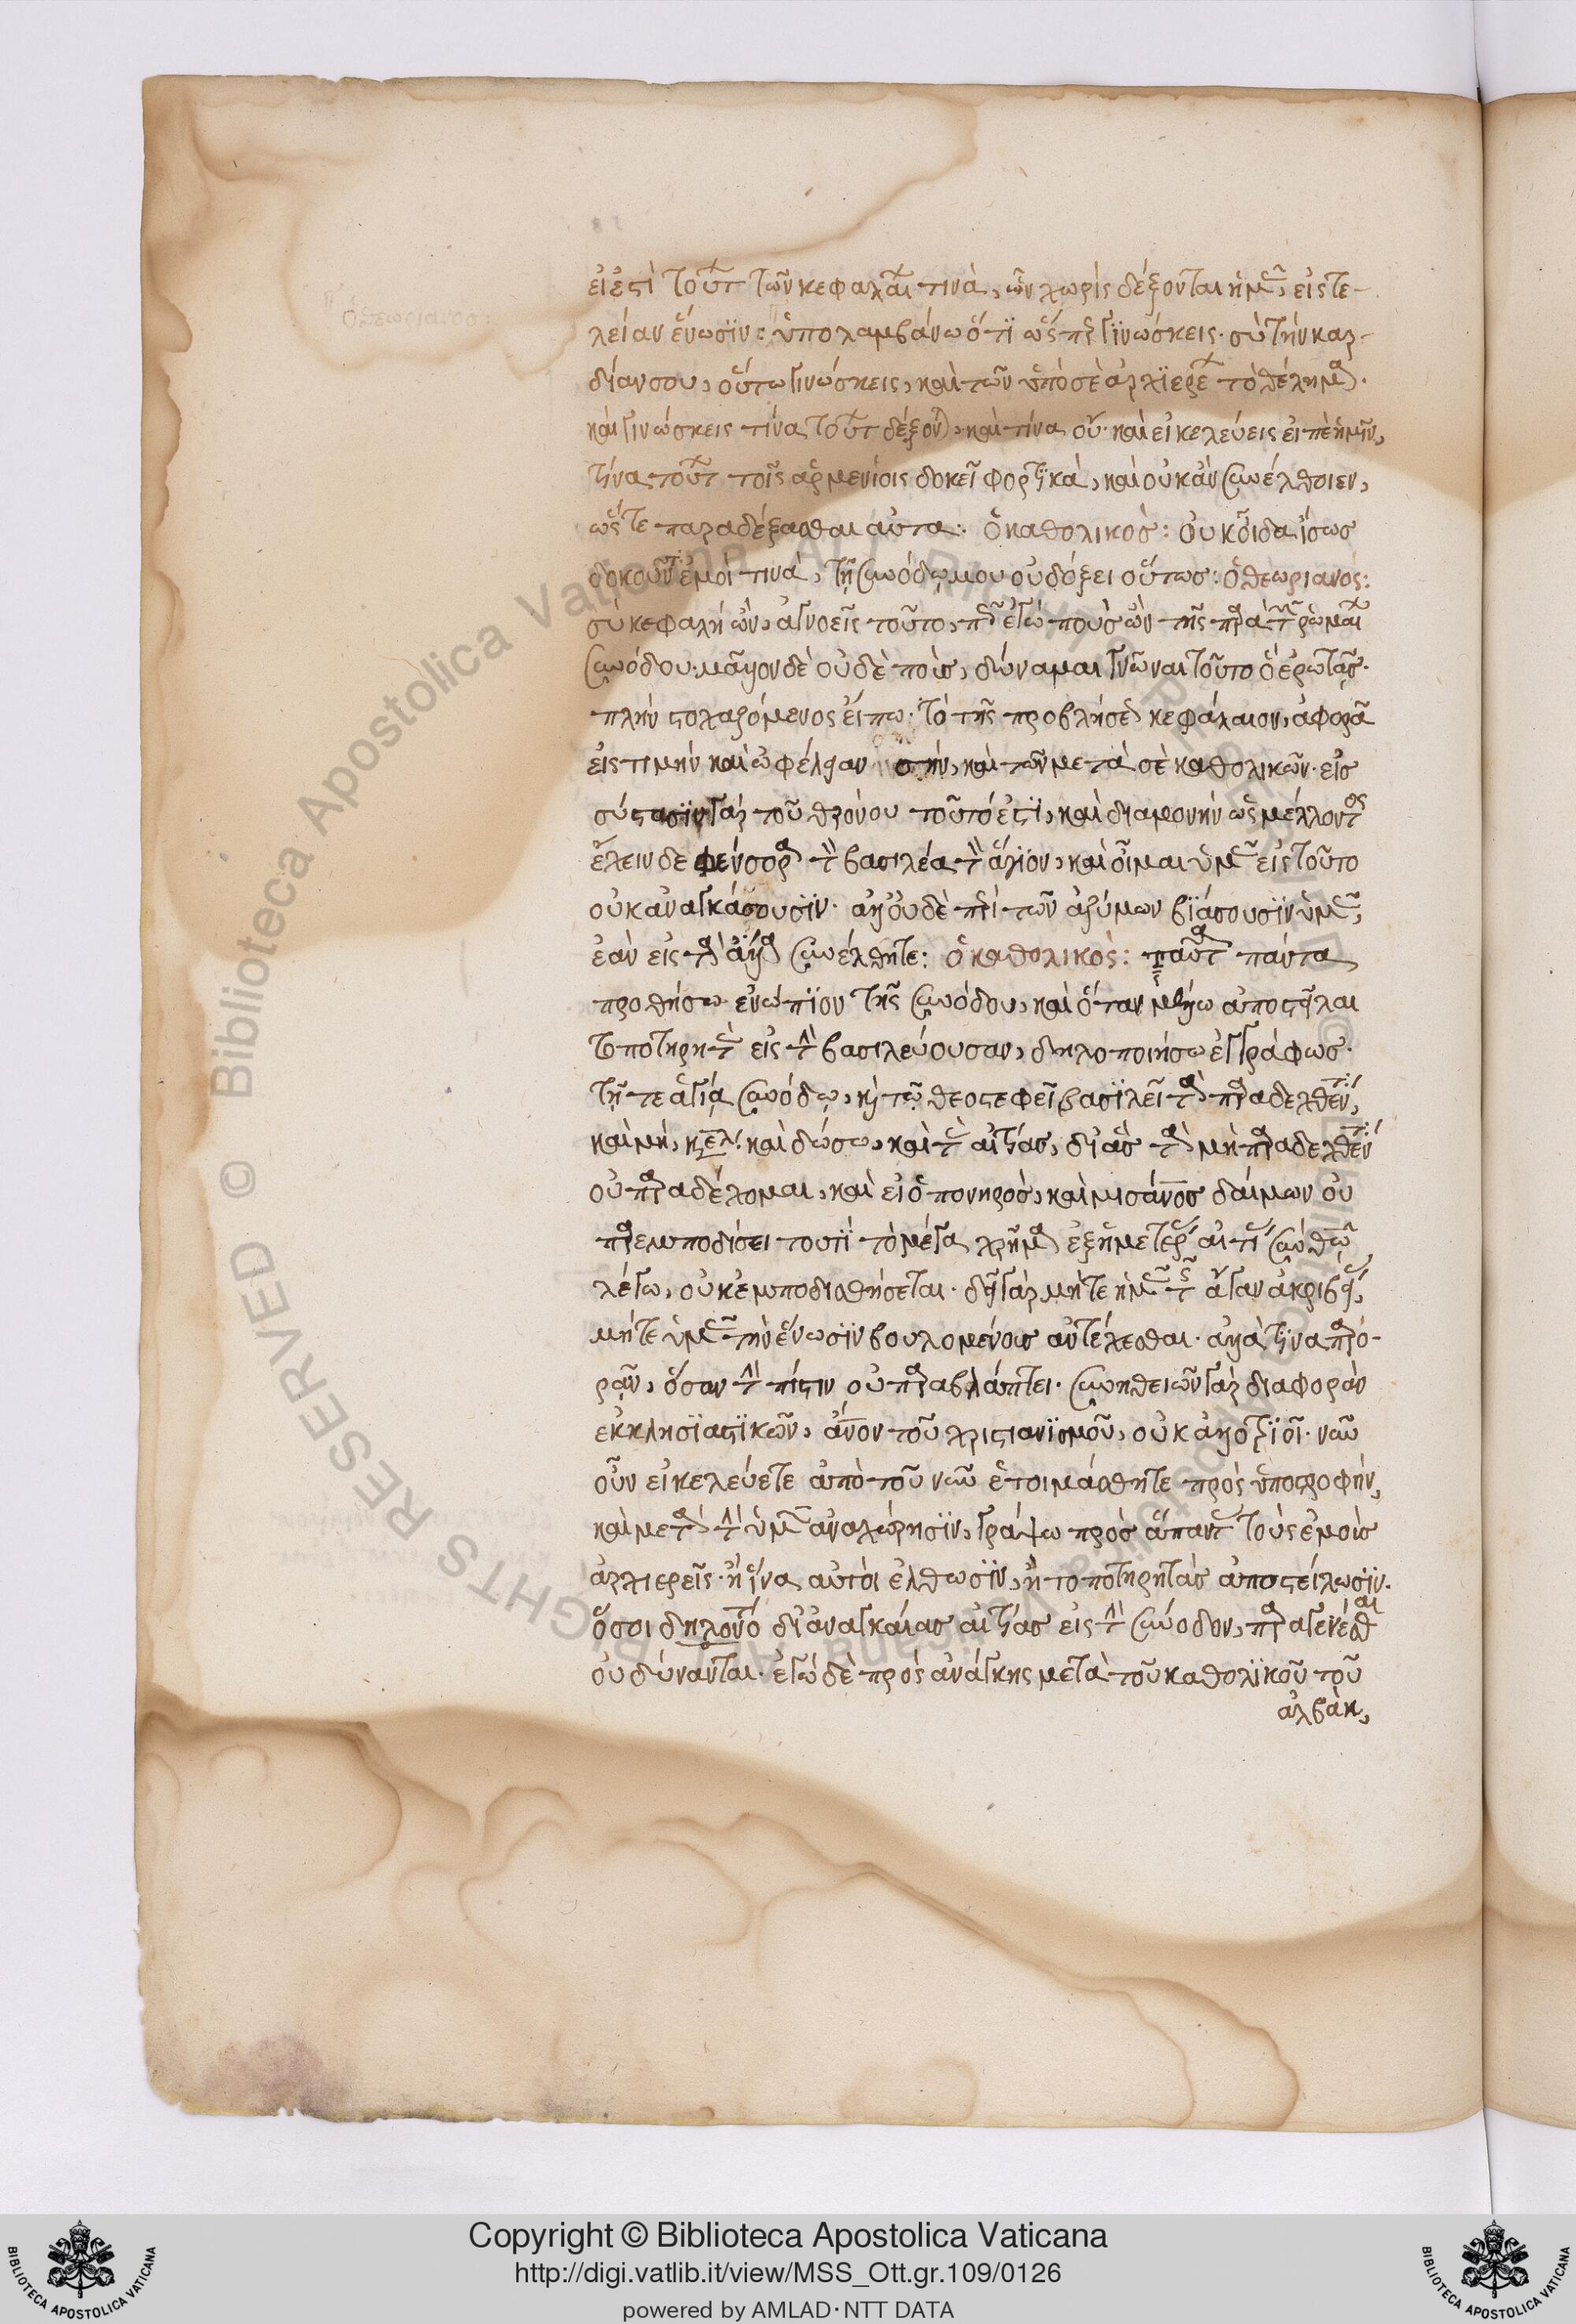 εἰ ἐστὶ τούτ τῶν κεφαλαί τινὰ, ὧν χωρὶς δέξονται ἡμ εἰς τε-
λείαν ἕνωσϊν: ὑπολαμβάνω ὅτϊ ὥσπερ γϊνώσκεις· σὺ τὴν καρ-
δίαν σου, οὕτω γινώσκεις, καὶ τῶν ὑπὸ σὲ ἀρχϊερέ τὸ θέλημα.
καὶ γινώσκεις τίνα τούτ δέξοντ, καὶ τίνα οὔ· καὶ εἰ κελεύεις εἰπὲ ἡμῖν,
τίνα τούτ τοῖς ἀρμενίοις δοκεῖ φορτϊκὰ, καὶ οὐκ ἂν συνέλθοιεν,
ὥστε παραδέξασθαι αὐτα: ὁ καθολικὸσ: οὐκ οἶδα ἴσωσ
δοκοῦντ ἐμοί τινὰ, τῆ συνόδω μου οὐ δόξει οὕτωσ: ὁ θεωριανος:
σὺ κεφαλὴ ὢν, ἀγνοεῖς τοῦτο, πῶς ἐγὼ ποὺσ ὢν τῆς παρὰ τ ρωμαί
συνόδου· μᾶλλον δὲ οὐδὲ ποὺσ, δύναμαι γνῶναι τοῦτο ὃ ἐρωτᾶς·
πλὴν στοχαζόμενος εἴπω· τὸ τῆς προβλήσε κεφάλαιον, ἀφορᾶ
εἰς τιμὴν καὶ ὠφέλειαν σὴν, καὶ τῶν μετὰ σὲ καθολικῶν· εἰσ
σύστασϊν γὰρ τοῦ θρόνου τοῦτό ἐστϊ, καὶ διαμονὴν ὡς μέλλοντος
ἔχειν δεφένσορα τὸν βασιλέα τὸν ἅγϊον, καὶ οἶμαι ὑμ εἰς τοῦτο
οὐκ ἀναγκάσουσϊν· ἀλλ' οὐδὲ περὶ τῶν ἀζύμων βϊάσουσϊν ὑμ,
ἐὰν εἰς τὰ ἄλλα συνέλθητε: ὁ καθολικὸς: ταῦτα πάντα
προθήσω ἐνώπϊον τῆς συνόδου, καὶ ὅταν μέλλω ἀποστεῖλαι
τοποτηρητ εἰς τὴν βασιλεύουσαν, δηλοποιήσω ἐγγράφωσ·
τῆ τε ἁγία συνόδω, καὶ τῶ θεοστεφεῖ βασϊλεῖ τὰ παραδεχθέντ,
καὶ μὴ, καὶ δώσω, καὶ τ αἰτίασ, δι' ἃσ τὰ μὴ παραδεχθέντ
οὐ παραδέχομαι, καὶ εἰ ὁ πονηρὸσ, καὶ μισάνοσ δαίμων οὐ
παρεμποδίσει τουτϊ τὸ μέγα χρῆμα ἐξ ἡμετέρ αἰτί
λέγω, οὐκ ἐμποδισθήσεται· δεῖ γὰρ μήτε ἡμ τ ἄγαν ἀκριβεί,
μήτε ὑμ τὴν ἕνωσϊν βουλομένουσ ἀντέχεσθαι· ἀλλά τϊνα παρο-
ρᾶν, ὅσαν τὴν πίστιν οὐ παραβλάπτει· συνηθειῶν γὰρ διαφορὰν
ἐκκλησϊαστϊκῶν, ἄνον τοῦ χριστιανϊσμοῦ, οὐκ ἀλλοτρϊοῖ· νῦν
οὖν εἰ κελεύετε ἀπὸ τοῦ νῦν ἑτοιμάσθητε πρὸς ὑποστροφὴν,
καὶ μετὰ τὴν ὑμ ἀναχώρησϊν, γράψω πρὸσ ἅπαντ τοὺς ἐμοὺσ
ἀρχιερεῖς· ἢ ἵνα αὐτοὶ ἔλθωσϊν, ἢ τοποτηρητὰσ ἀποστείλωσϊν.
ὅσοι δηλονότι δι' ἀναγκαίασ αἰτίασ εἰς τὴν σύνοδον, παραγενέσθαι
οὐ δύνανται· ἐγὼ δὲ πρὸς ἀνάγκης μετὰ τοῦ καθολϊκοῦ τοῦ
ἀλβὰκ,
Copyright © Biblioteca Apostolica Vaticana
http://digi.vatlib.it/view/MSS_Ott.gr.109/0126
powered by AMLAD · NTT DATA